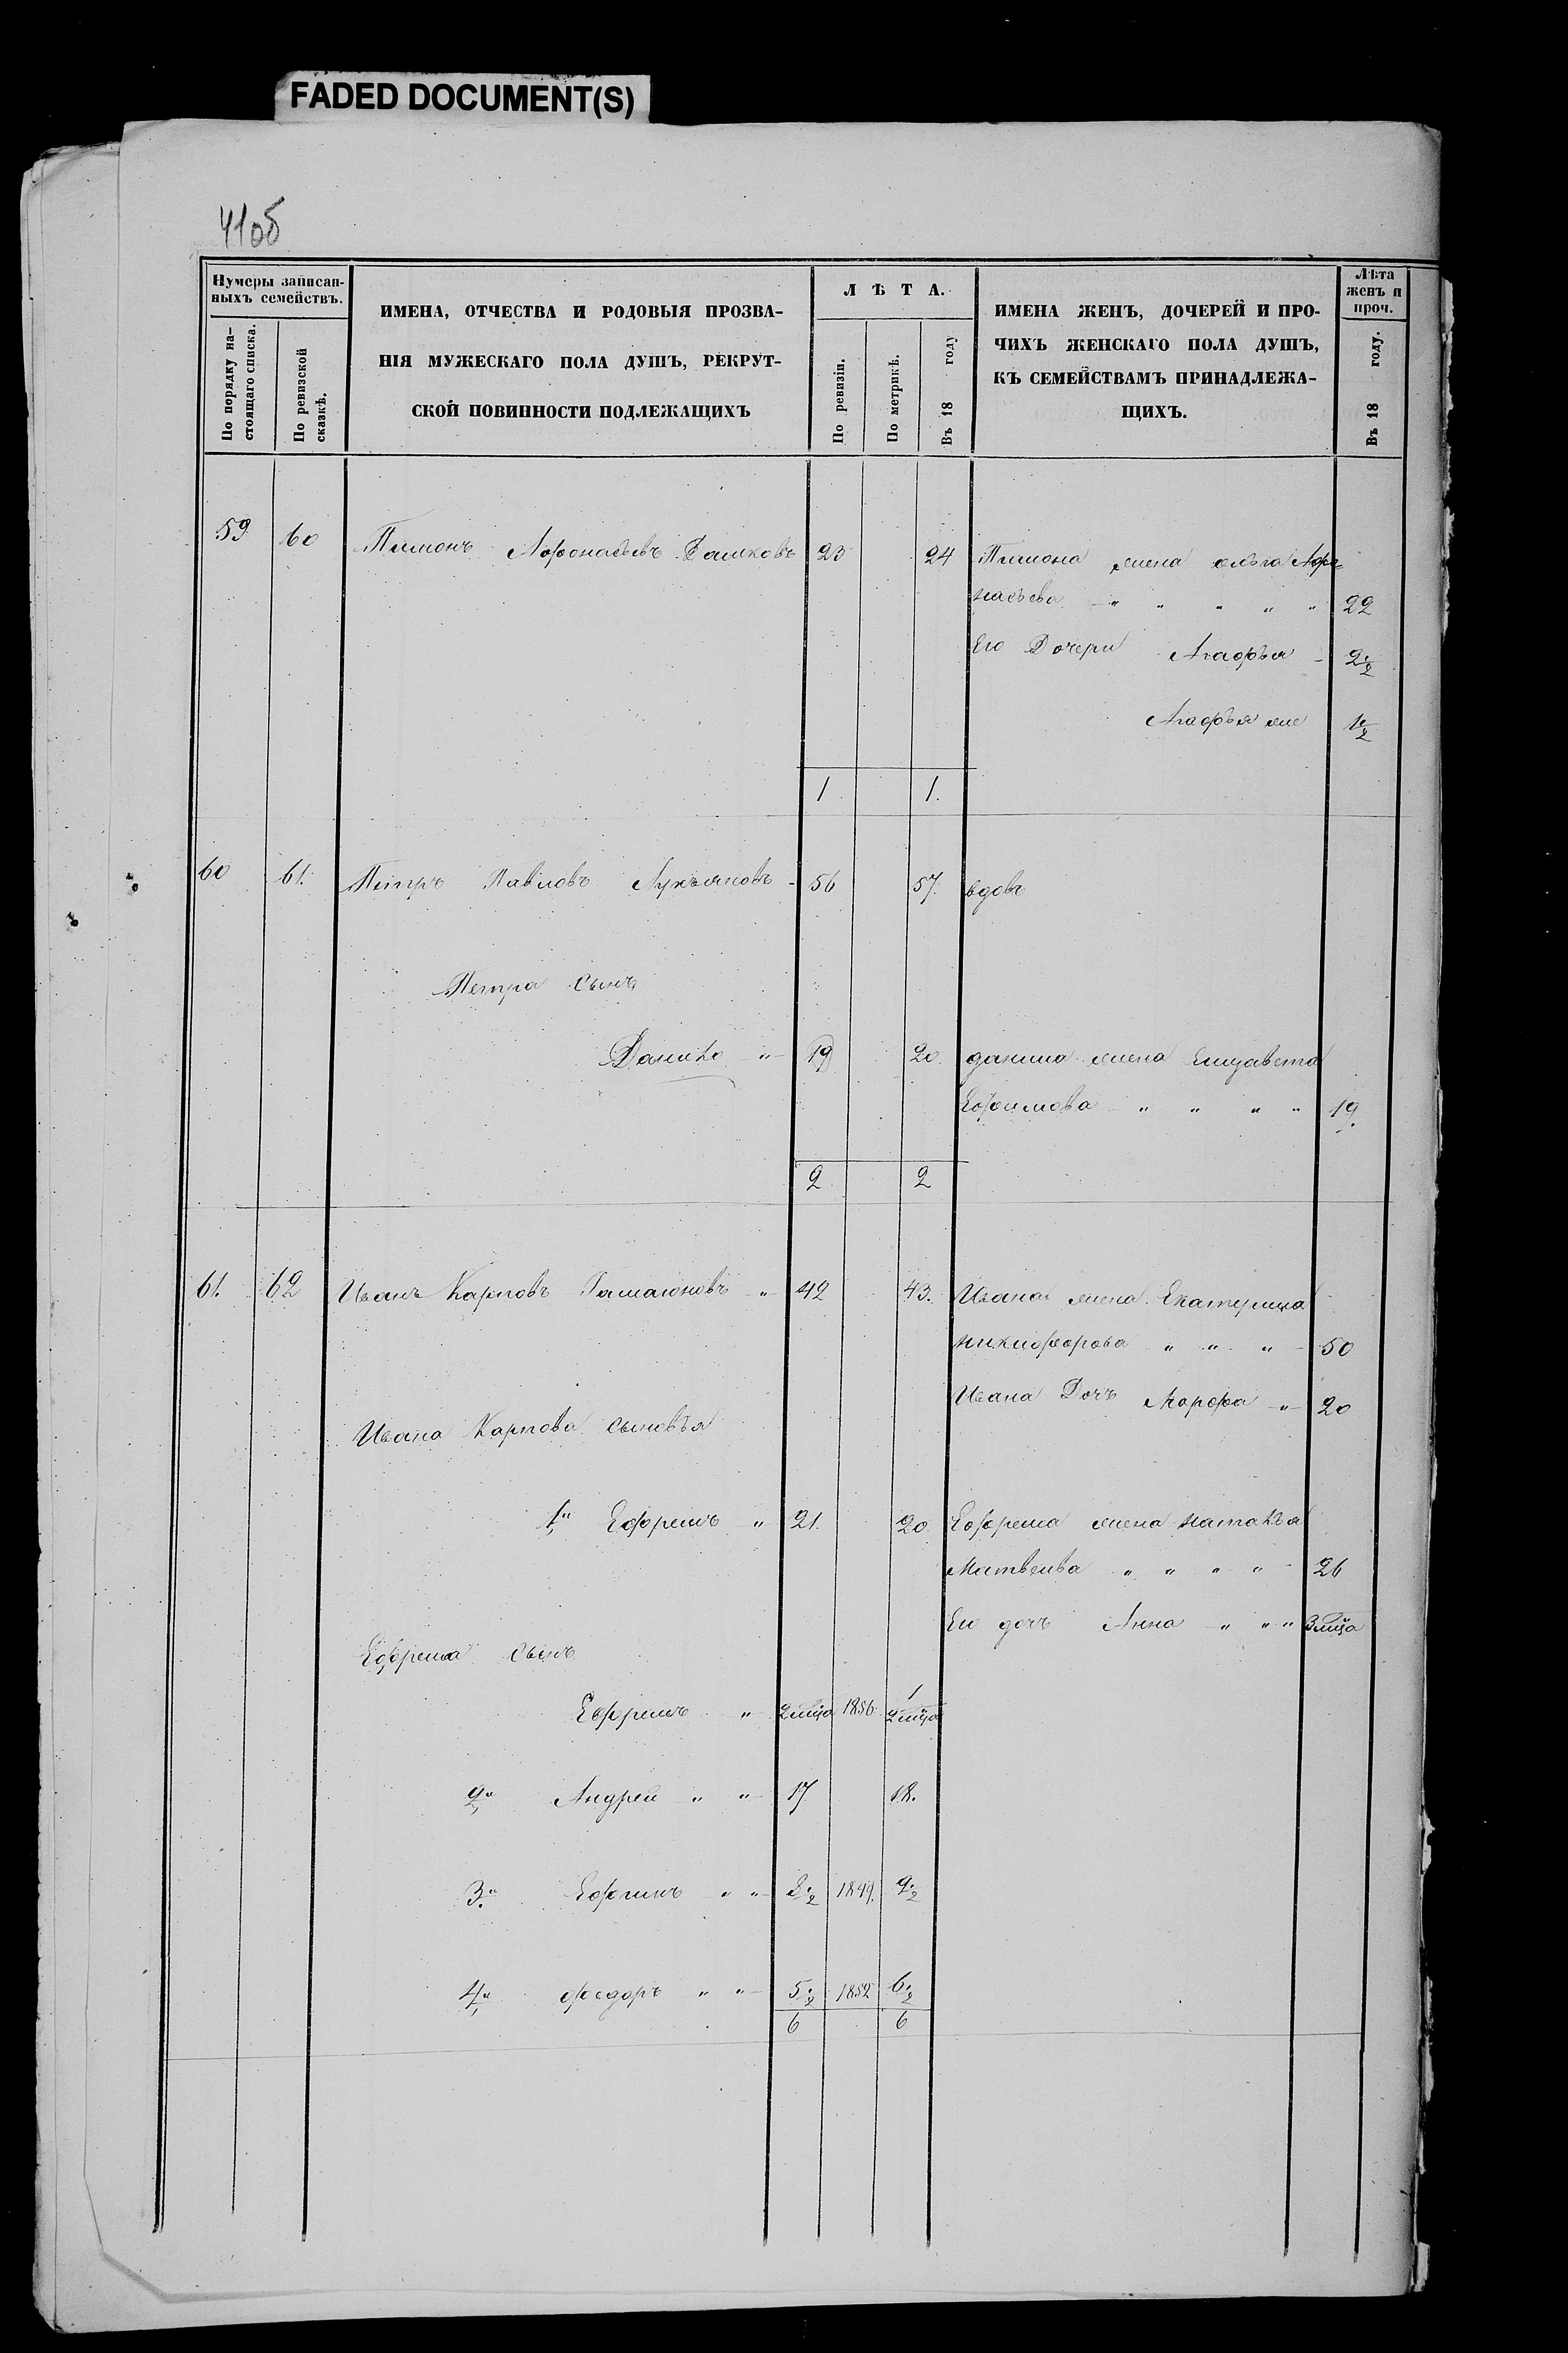 FADED DOCUMENT(S)
41об
Нумеры записан-
ныхъ семействъ.
По порядку на-
стоящаго списка.
По ревизской
сказкѣ.
ИМЕНА, ОТЧЕСТВА И РОДОВЫЯ ПРОЗВА-
НІЯ МУЖЕСКАГО ПОЛА ДУШЪ, РЕКРУТ-
СКОЙ ПОВИННОСТИ ПОДЛЕЖАЩИХЪ
ЛѢТА.
По ревизіи.
По метрикѣ.
Въ 18 году
ИМЕНА ЖЕНЪ, ДОЧЕРЕЙ И ПРО-
ЧИХЪ ЖЕНСКАГО ПОЛА ДУШЪ,
КЪ СЕМЕЙСТВАМЪ ПРИНАДЛЕЖА-
ЩИХЪ.
Лѣта
женъ и
проч.
Въ 18 году.
59 60 Пимонъ Афонасьевъ 23 24 Пимона жена Афа=
насьева " " " " " 22
Его Дочери Агафья - 2 1/2
Агафья же 1/2
1 1.
60 61. Петръ Павловъ Лукъяновъ - 56 57. вдовъ
Петра сынъ
Данило " 19 20 данила жена Елизавета
Ефимова " " " " 19.
2 2
61. 62 Иванъ Карповъ " 42 43. Ивана жена Екатерина
никифорова " " " 50
Ивана Дочъ Марфа " 20
Ивана Карпова сыновъя
1й Ефремъ " 21. 20 Ефрема жена наталъя
Матвеива " " " " 26
Его дочъ Анна " " " 3 мца
Ефрема сынъ
Ефремъ " 2 мца 1856 1 2 мца
2й Андрей " " 17 18.
3й Ефимъ " " 8 1/2 1849. 9 1/2
4й федоръ " " 5 1/2 1852 6 1/2
6 6